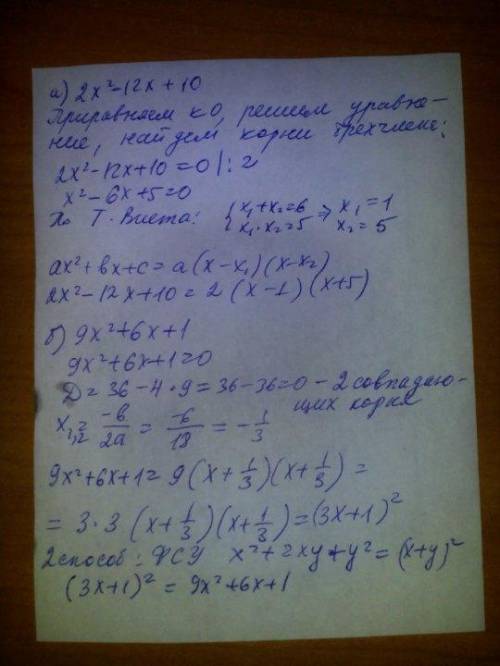 а) 2x²-12x+10
Приравняем к 0, решаем уравне-
ние, найдем корни трехчлена:
2x²-12x+10=0 |:2
x²-6x+5=0
По Т. Виета: { x₁+x₂=6 x₁·x₂=5 ⇒ x₁=1 x₂=5
ax²+bx+c=a(x-x₁)(x-x₂)
2x²-12x+10=2(x-1)(x+5)
б) 9x²+6x+1
9x²+6x+1=0
D=36-4·9=36-36=0 - 2 совпадаю-
щих корня
x₁,₂= -b/2a = -6/18 = -1/3
9x²+6x+1=9(x+1/3)(x+1/3)=
=3·3(x+1/3)(x+1/3)=(3x+1)²
2 способ: ФСУ x²+2xy+y²=(x+y)²
(3x+1)²=9x²+6x+1